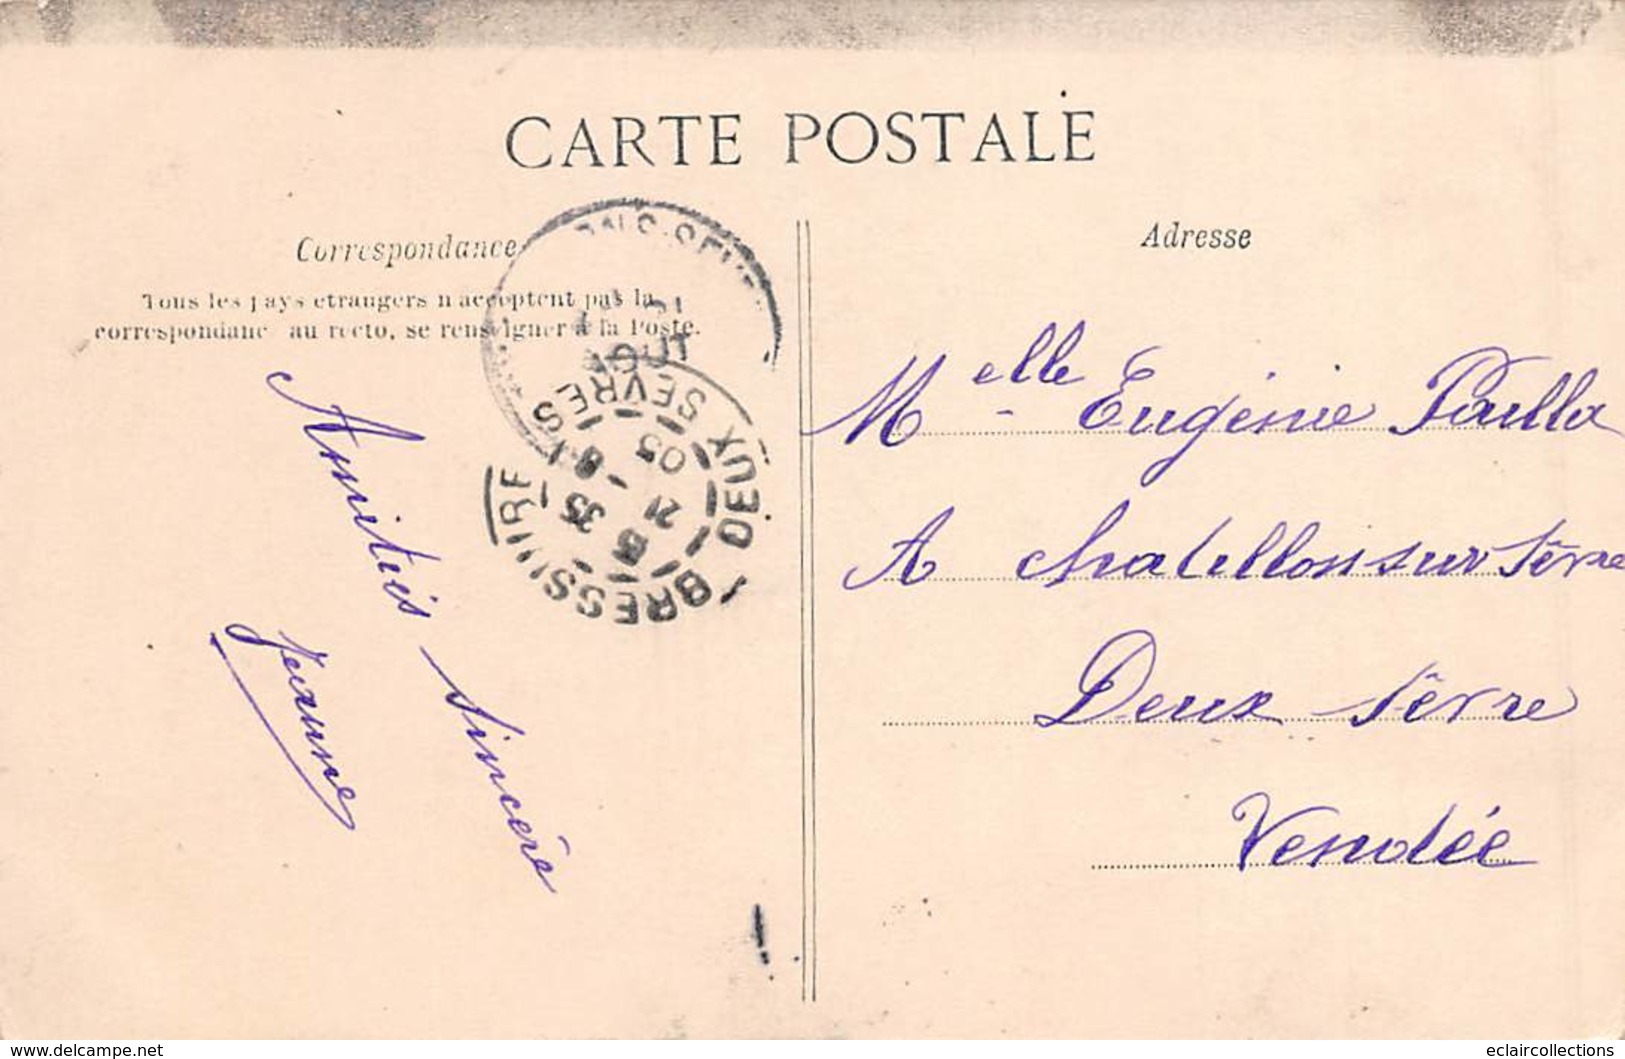 CARTE POSTALE
Correspondance
Tous les pays etrangers n acceptent pas la
correspondanc au recto, se renseigner à la Poste.
Amitiés sincére
Jeanne
BRESSUIRE
DEUX SEVRES
8-
35
21
05
AOUT
Adresse
Melle Eugénie
A Chatillon sur Sêvre
Deux Sêvre
Vendée
www.delcampe.net
eclaircollections